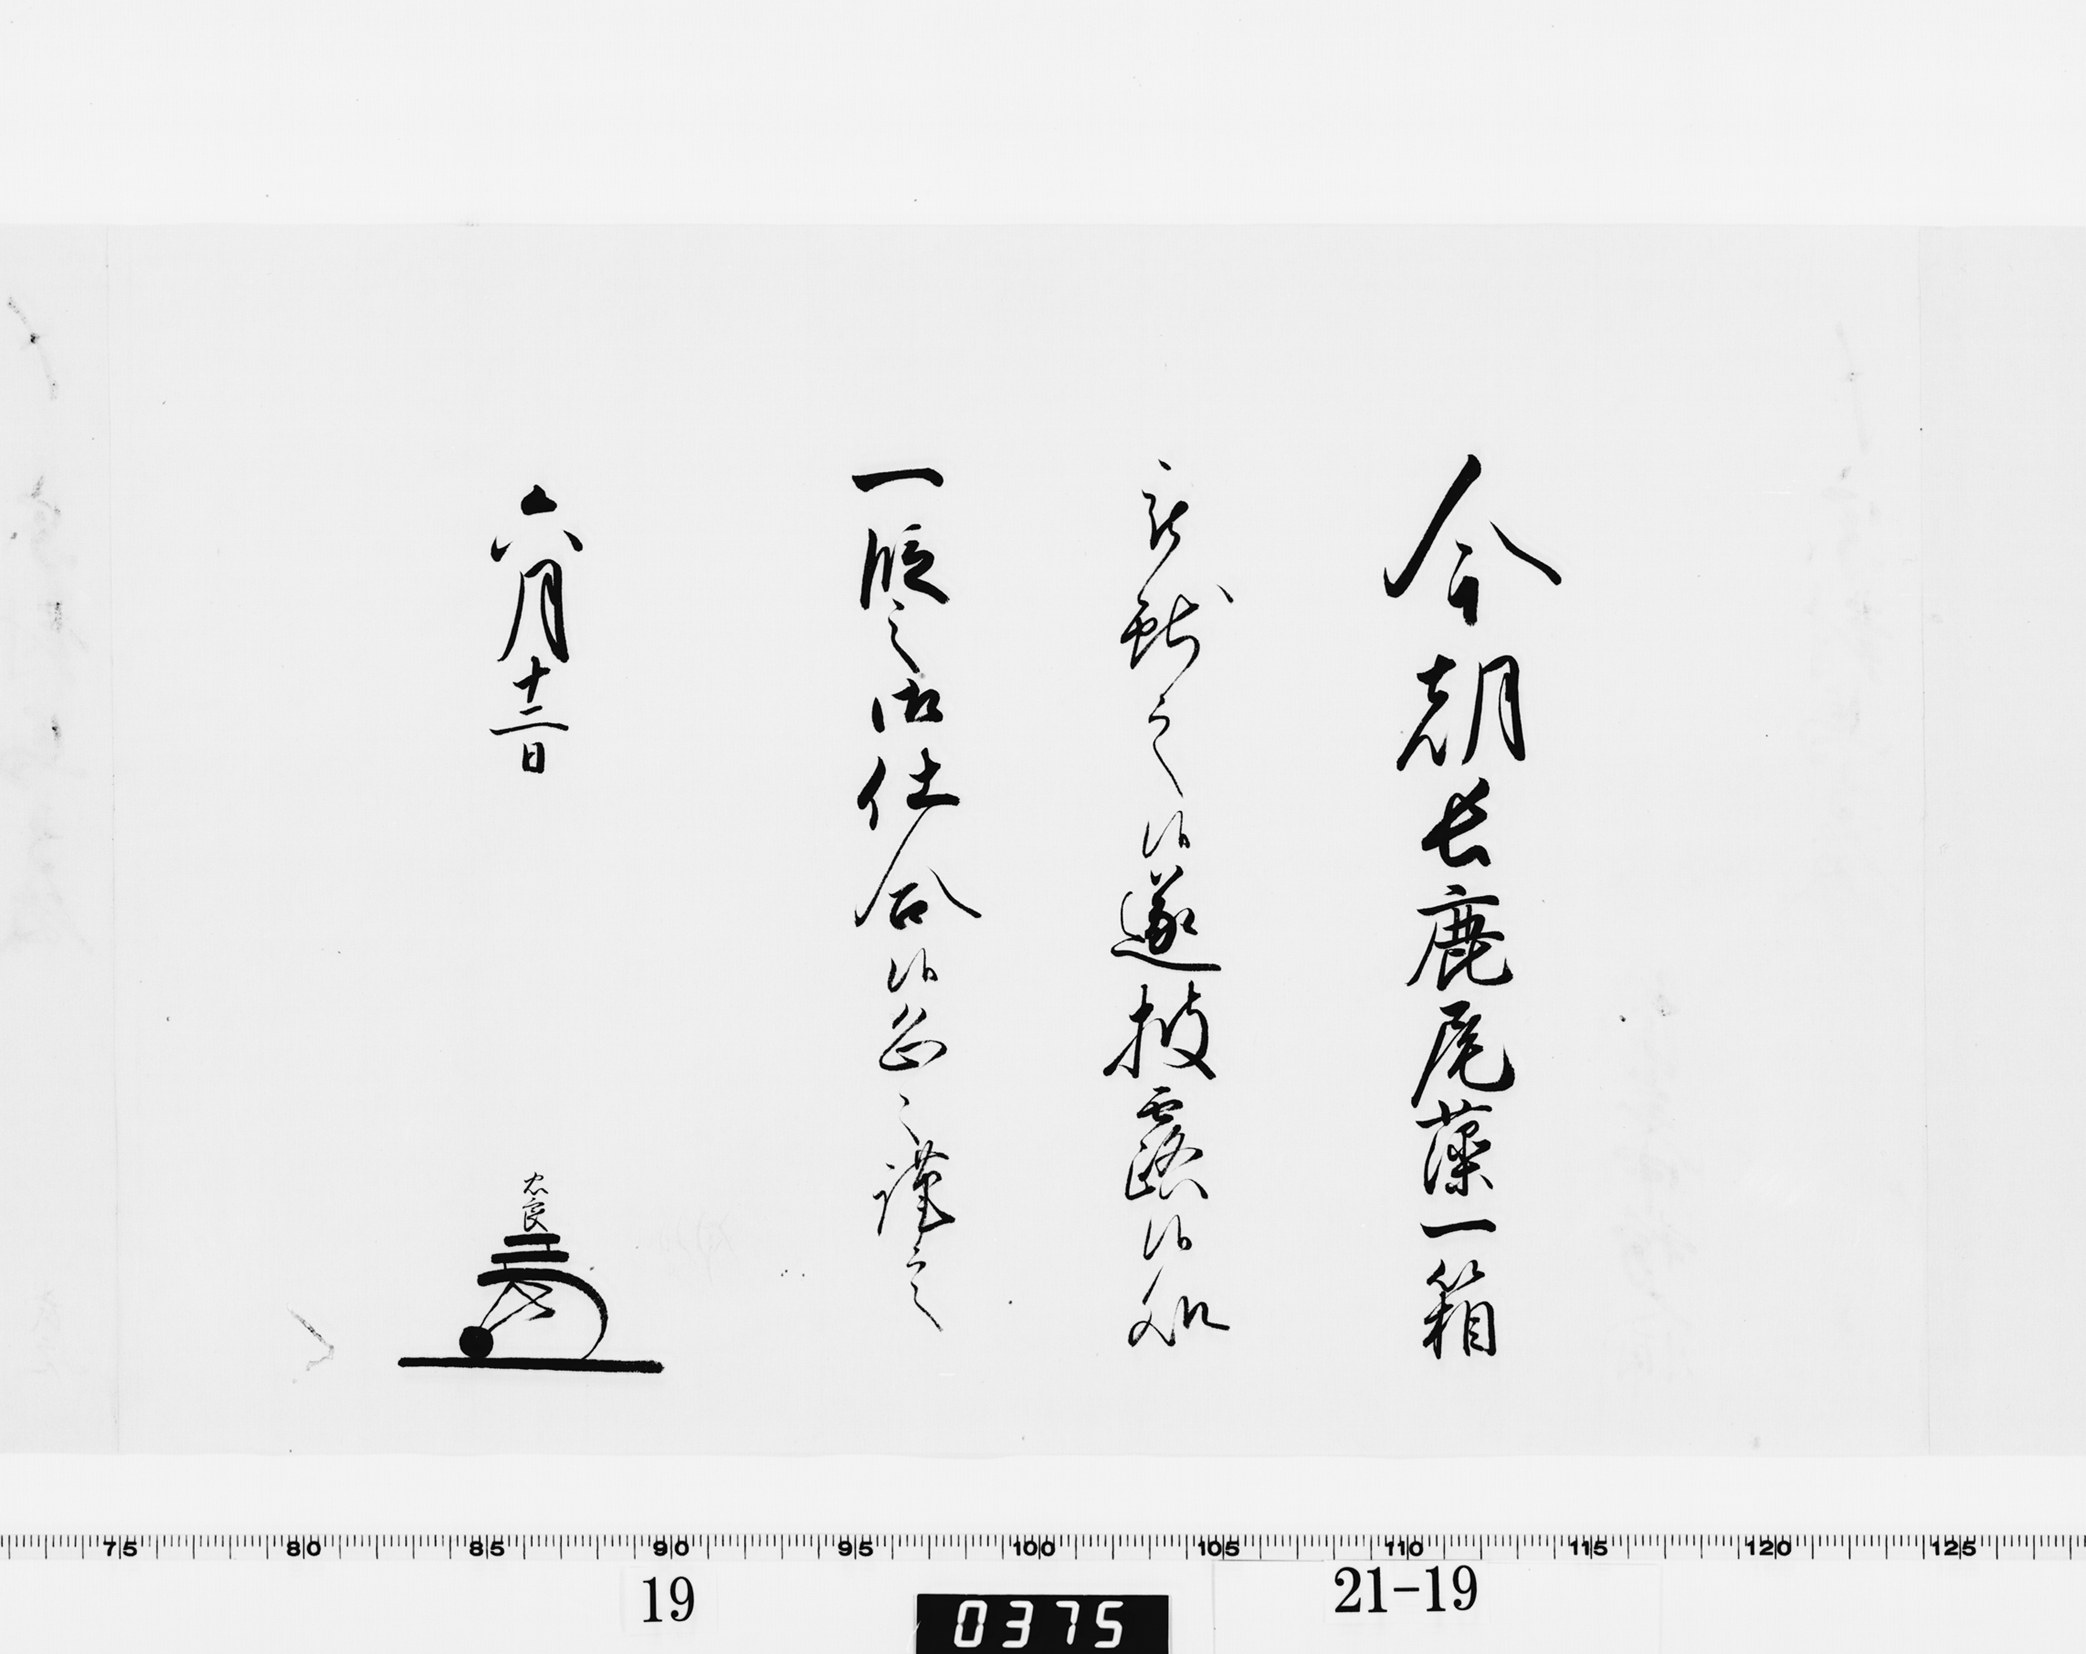 今朝長鹿尾藻一箱
被献之候遂披露候処
一段之御仕合候恐々謹言
六月十二日
忠良
75 80 85 90 95 100 105 110 115 120 125
19
0375
21-19